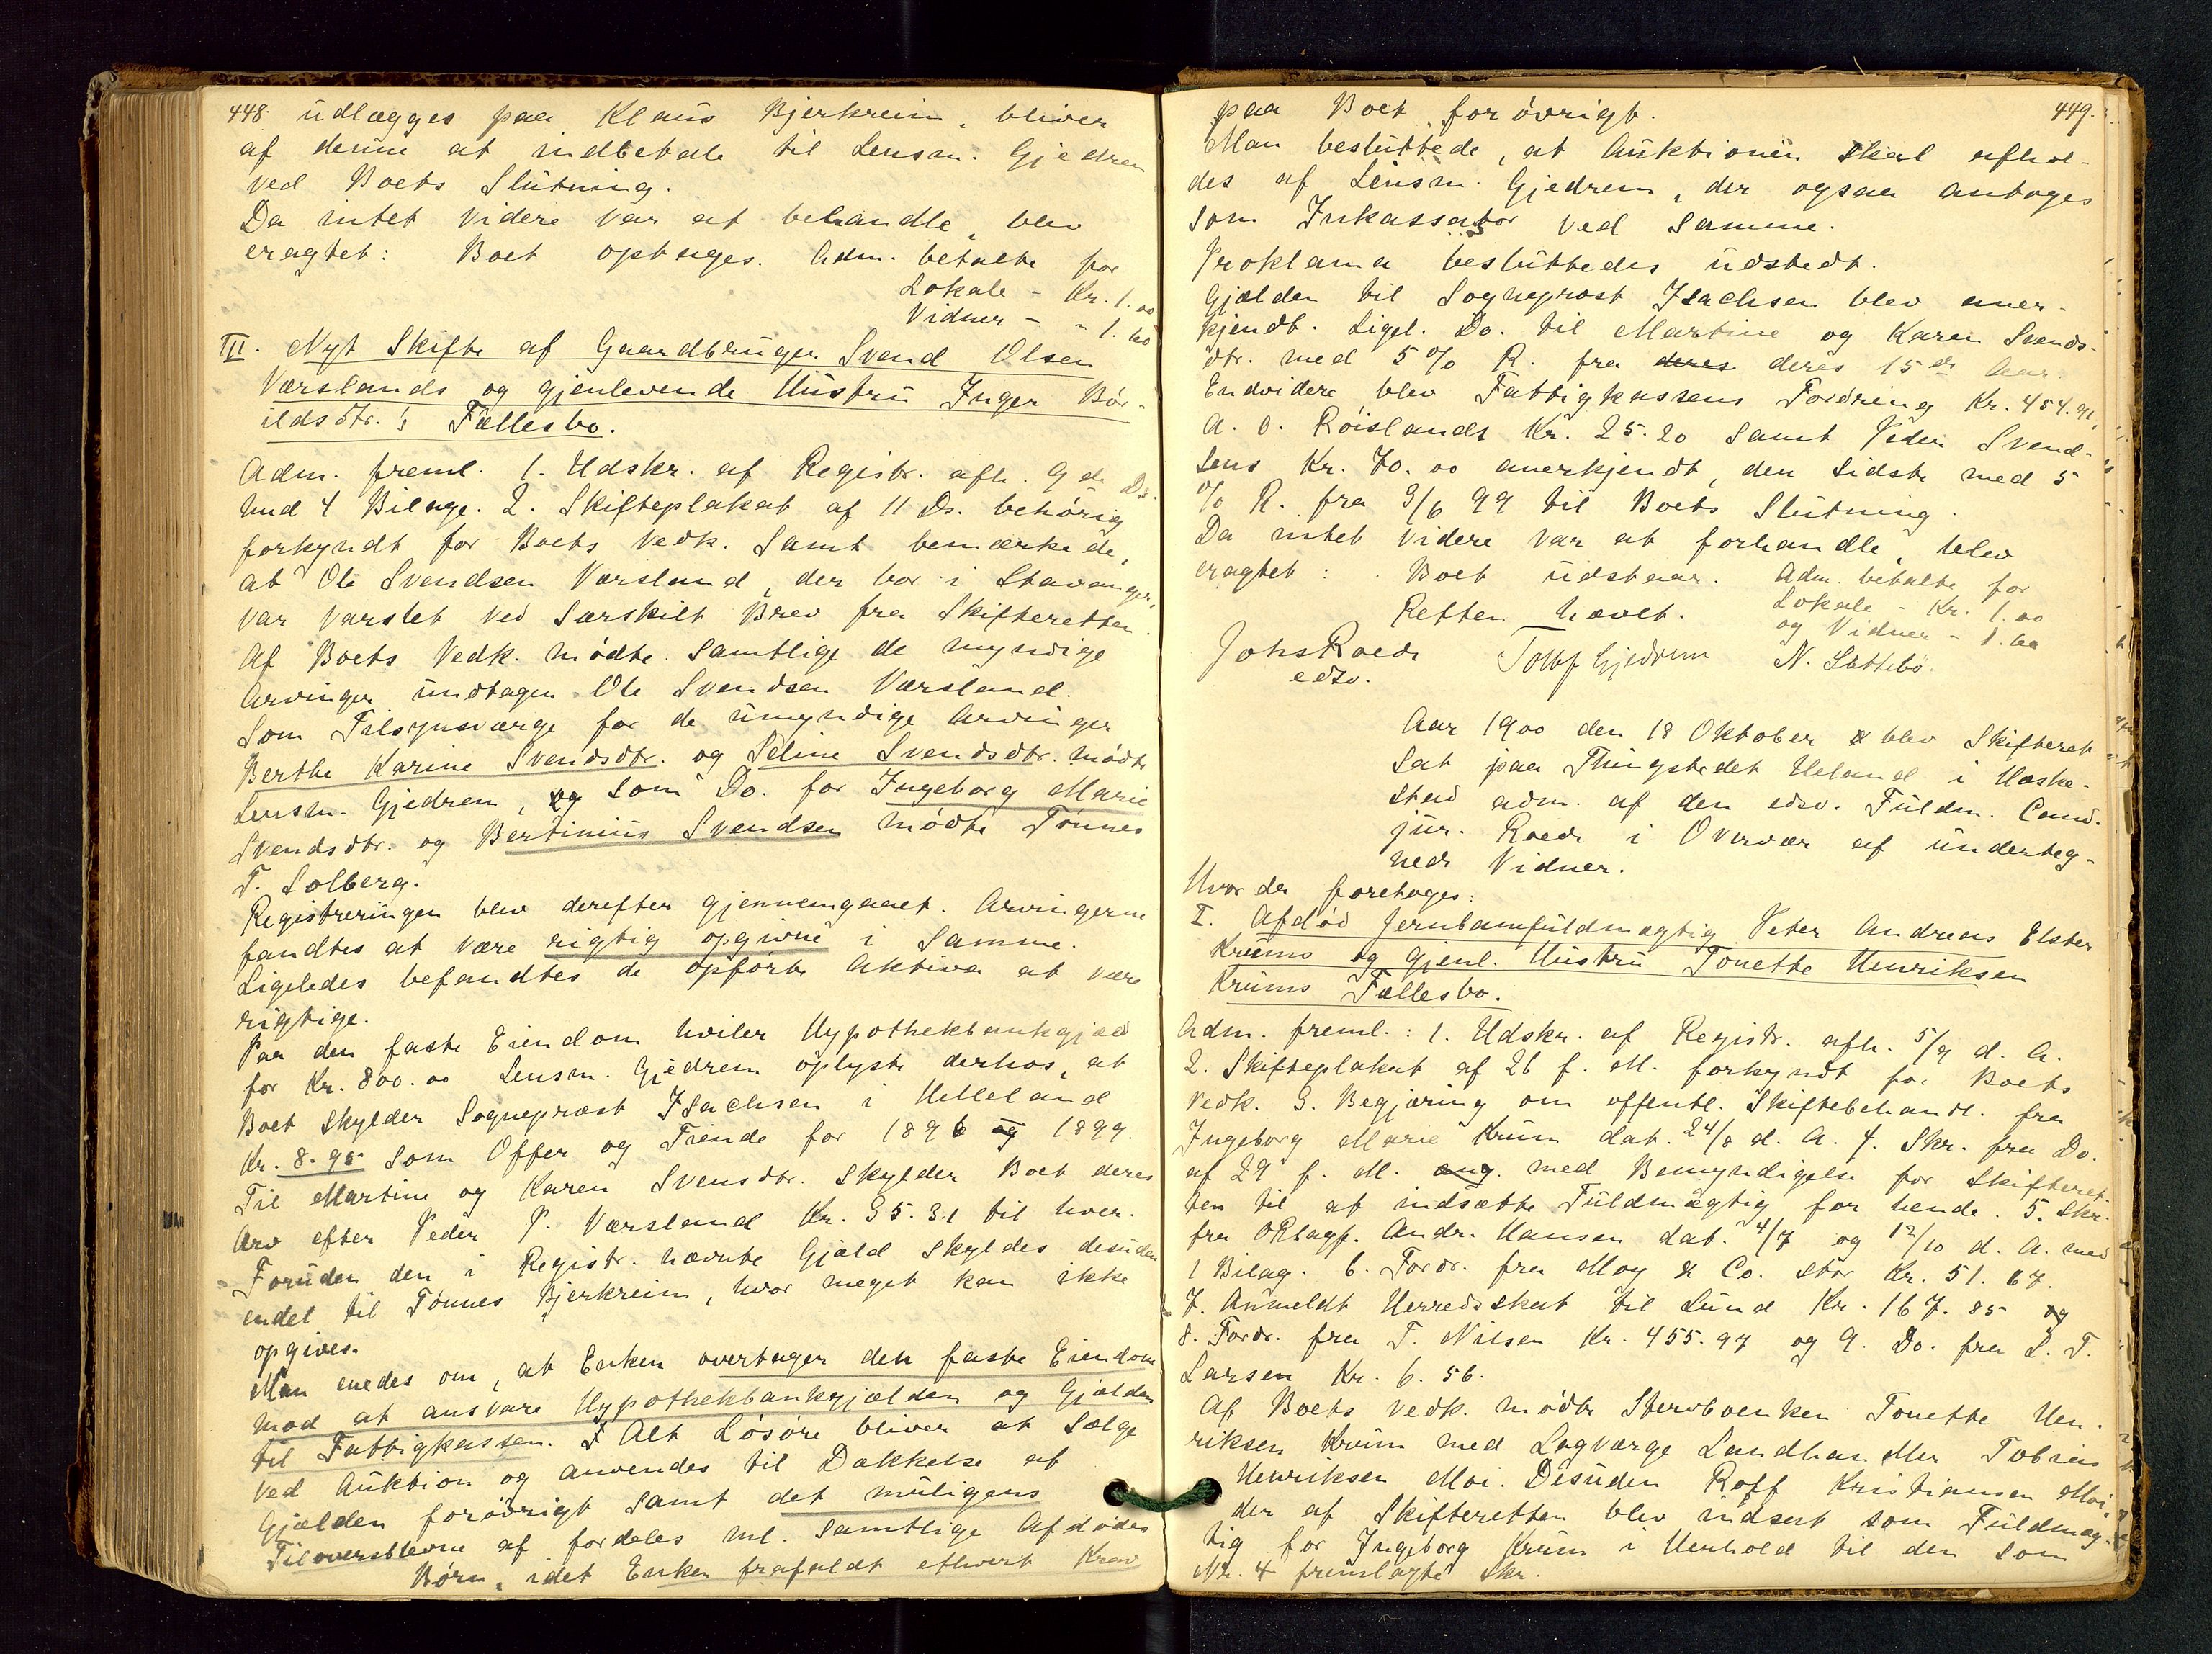 448. udlægges paa Klaus Bjerkreim, bliver
af denne at indbetale til Lensm. Gjedrem
ved Boets Slutning.
Da intet videre var at behandle, blev
eragtet: Boet optages. Adm. betalte for
Lokale - Kr. 1.00
Vidner - " 1.60
III. Nyt Skifte af Gaardbruger Svend Olsen
Værslands og gjenlevende Hustru Inger Bør-
ildsdtr.'s Fællesbo.
Adm. freml. 1. Udskr. af Registr. afh. 9 de Ds.
med 4 Bilage. 2. Skifteplakat af 11 Ds. behørig
forkyndt for Boets Vedk. samt bemærkede,
at Ole Svendsen Værsland, der bor i Stavanger,
var varslet ved særskilt Brev fra Skifteretten.
Af Boets Vedk. mødte samtlige de myndige
Arvinger undtagen Ole Svendsen Værsland.
Som Tilsynsværge for de umyndige Arvinger
Berthe Karine Svendsdtr. og Seline Svendsdtr. mødte
Lensm. Gjedrem, og som Do. for Ingeborg Marie
Svendsdtr. og Bertinius Svendsen mødte Tønnes
T. Solberg.
Registreringen blev derefter gjennemgaaet. Arvingerne
fandtes at være rigtig opgivne i samme.
Ligeledes befandtes de opførte Aktiva at være
rigtige.
Paa den faste Eiendom hviler Hypothekbankgjæld
for Kr. 800.00 Lensm. Gjedrem oplyste derhos, at
Boet skylder Sognepræst Isachsen i Helleland
Kr. 8.95 som Offer og Tiende for 1896 og 1899.
Til Martine og Karen Svensdtr. skylder Boet deres
Arv efter Peder P. Værsland Kr. 35.31 til hver.
Foruden den i Registr. nævnte Gjæld skyldes desuden
endel til Tønnes Bjerkreim, hvor meget kan ikke
opgives.
Man enedes om, at Enken overtager den faste Eiendom
mod at ansvare Hypothekbankgjælden og Gjælden
til Fattigkassen. Alt Løsøre bliver at sælge
ved Auktion og anvendes til Dækkelse af
Gjælden forøvrigt samt det muligens
Tiloversblevne af fordeles ml. samtlige Afdødes
Børn, idet Enken frafaldt ethvert Krav
449.
paa Boet forøvrigt.
Man besluttede, at Auktionen skal afhol-
des af Lensm. Gjedrem, der ogsaa antoges
som Inkassator ved samme.
Proklama besluttedes udstedt.
Gjælden til Sognepræst Isachsen blev aner-
kjendt. Ligel. Do. til Martine og Karen Svends-
dtr. med 5 % R. fra deres deres 15 de Aar.
Endvidere blev Fattigkassens Fordring Kr. 454.91,
A. O. Røislands Kr. 25.20 samt Peder Svend-
sens Kr. 70.00 anerkjendt, den sidste med 5
% R. fra 3/6 99 til Boets Slutning.
Da intet videre var at forhandle, blev
eragtet: Boet udstaar. Adm. betalte for
Lokale - Kr. 1.00
og Vidner - 1.60
Retten hævet.
Johs Roede
edsv.
Tollf Gjedrem
N. Slettebø.
Aar 1900 den 18 Oktober blev Skifteret
sat paa Thingstedet Heland i Heske-
stad adm. af den edsv. Fuldm. Cand.
jur. Roede i Overvær af underteg-
nede Vidner.
Hvor da foretoges:
I. Afdød Jernbanefuldmægtig Peter Andreas Elster
Krums og Gjenl. Hustru Tonette Henriksen
Krums Fællesbo.
Adm. freml.: 1. Udskr. af Registr. afh. 5/9 d. A.
2. Skifteplakat af 26 f. M. forkyndt for Boets
Vedk. 3. Begjæring om offentl. Skiftebehandl. fra
Ingeborg Marie Krum dat. 24/8 d. A. 4. Skr. fra Do.
af 29 f. M. ang. med Bemyndigelse for Skifteret-
ten til at indsætte Fuldmægtig for hende. 5. Skr.
fra ORsagf. Andr. Hansen dat. 4/7 og 12/10 d. A. med
1 Bilag. 6. Fordr. fra Moy & Co. stor Kr. 51.67.
7. Anmeldt Herredsskat til Lund Kr. 167.85 og
8. Fordr. fra T. Nilsen Kr. 455.97 og 9. Do. fra L. T.
Larsen Kr. 6.56.
Af Boets Vedk. mødte Stervboenken Tonette Hen-
riksen Krum med Lagværge Landhandler Tobias
Henriksen Moi. Desuden Roff Kristiansen Moi,
der af Skifteretten blev indsat som Fuldmæg-
tig for Ingeborg Krum i Henhold til den som
No. 4 fremlagte Skr.